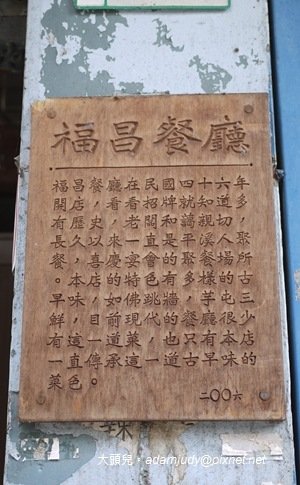 福昌餐廳
福昌餐廳在民國四十六年
開店，看看招牌就知道多
有歷史，老闆和藹親切，
長久以來一直是平溪人聚
餐，喜慶宴會的聚餐場所
。本店的特色有多樣的古
早味，如佛跳牆，芋屯三
鮮，目前現代的餐廳很少
有這一道菜，也只有本店
一直傳承這一道古早味的
菜色。
二〇〇六
辣
大頭兒，adamjudy@pixnet.net